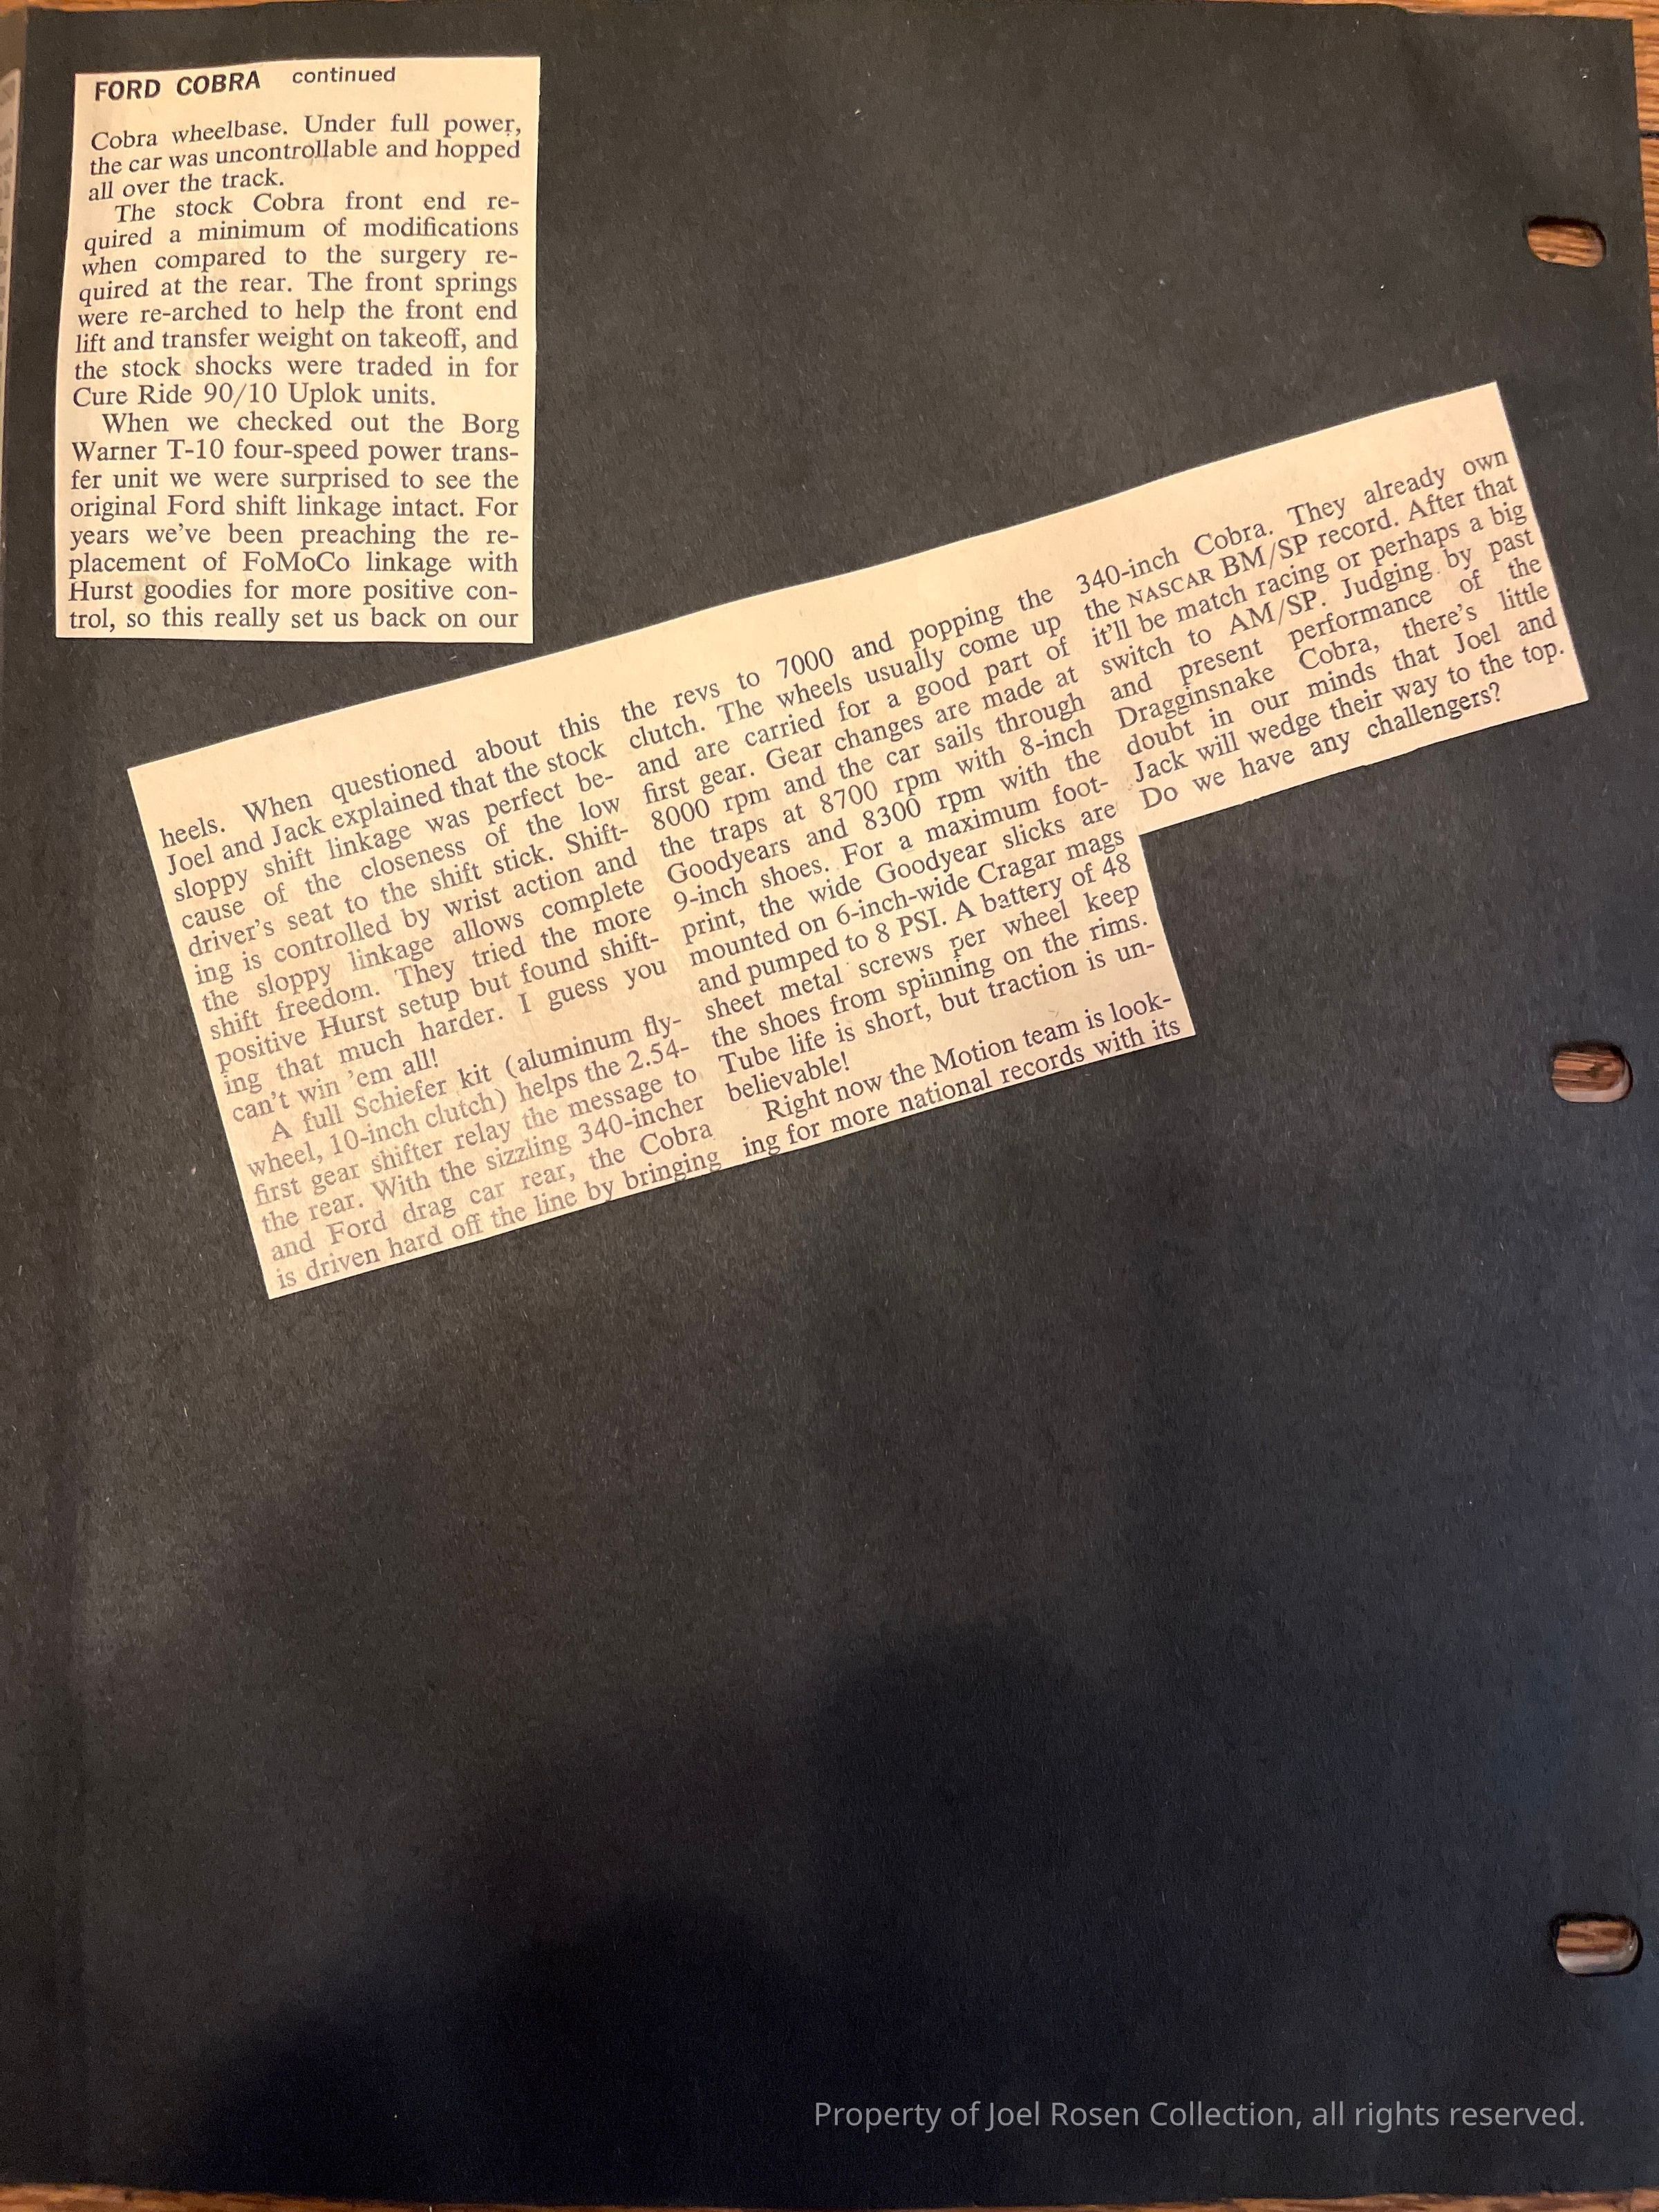 FORD COBRA continued
Cobra wheelbase. Under full power,
the car was uncontrollable and hopped
all over the track.
The stock Cobra front end re-
quired a minimum of modifications
when compared to the surgery re-
quired at the rear. The front springs
were re-arched to help the front end
lift and transfer weight on takeoff, and
the stock shocks were traded in for
Cure Ride 90/10 Uplok units.
When we checked out the Borg
Warner T-10 four-speed power trans-
fer unit we were surprised to see the
original Ford shift linkage intact. For
years we've been preaching the re-
placement of FoMoCo linkage with
Hurst goodies for more positive con-
trol, so this really set us back on our
heels. When questioned about this
Joel and Jack explained that the stock
sloppy shift linkage was perfect be-
cause of the closeness of the low
driver's seat to the shift stick. Shift-
ing is controlled by wrist action and
the sloppy linkage allows complete
shift freedom. They tried the more
positive Hurst setup but found shift-
ing that much harder. I guess you
can't win 'em all!
A full Schiefer kit (aluminum fly-
wheel, 10-inch clutch) helps the 2.54-
first gear shifter relay the message to
the rear. With the sizzling 340-incher
and Ford drag car rear, the Cobra
is driven hard off the line by bringing
the revs to 7000 and popping the
clutch. The wheels usually come up
and are carried for a good part of
first gear. Gear changes are made at
8000 rpm and the car sails through
the traps at 8700 rpm with 8-inch
Goodyears and 8300 rpm with the
9-inch shoes. For a maximum foot-
print, the wide Goodyear slicks are
mounted on 6-inch-wide Cragar mags
and pumped to 8 PSI. A battery of 48
sheet metal screws per wheel keep
the shoes from spinning on the rims.
Tube life is short, but traction is un-
believable!
Right now the Motion team is look-
ing for more national records with its
340-inch Cobra. They already own
the NASCAR BM/SP record. After that
it'll be match racing or perhaps a big
switch to AM/SP. Judging by past
and present performance of the
Dragginsnake Cobra, there's little
doubt in our minds that Joel and
Jack will wedge their way to the top.
Do we have any challengers?
Property of Joel Rosen Collection, all rights reserved.